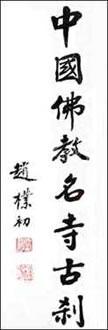 中國佛教名寺古刹
趙樸初